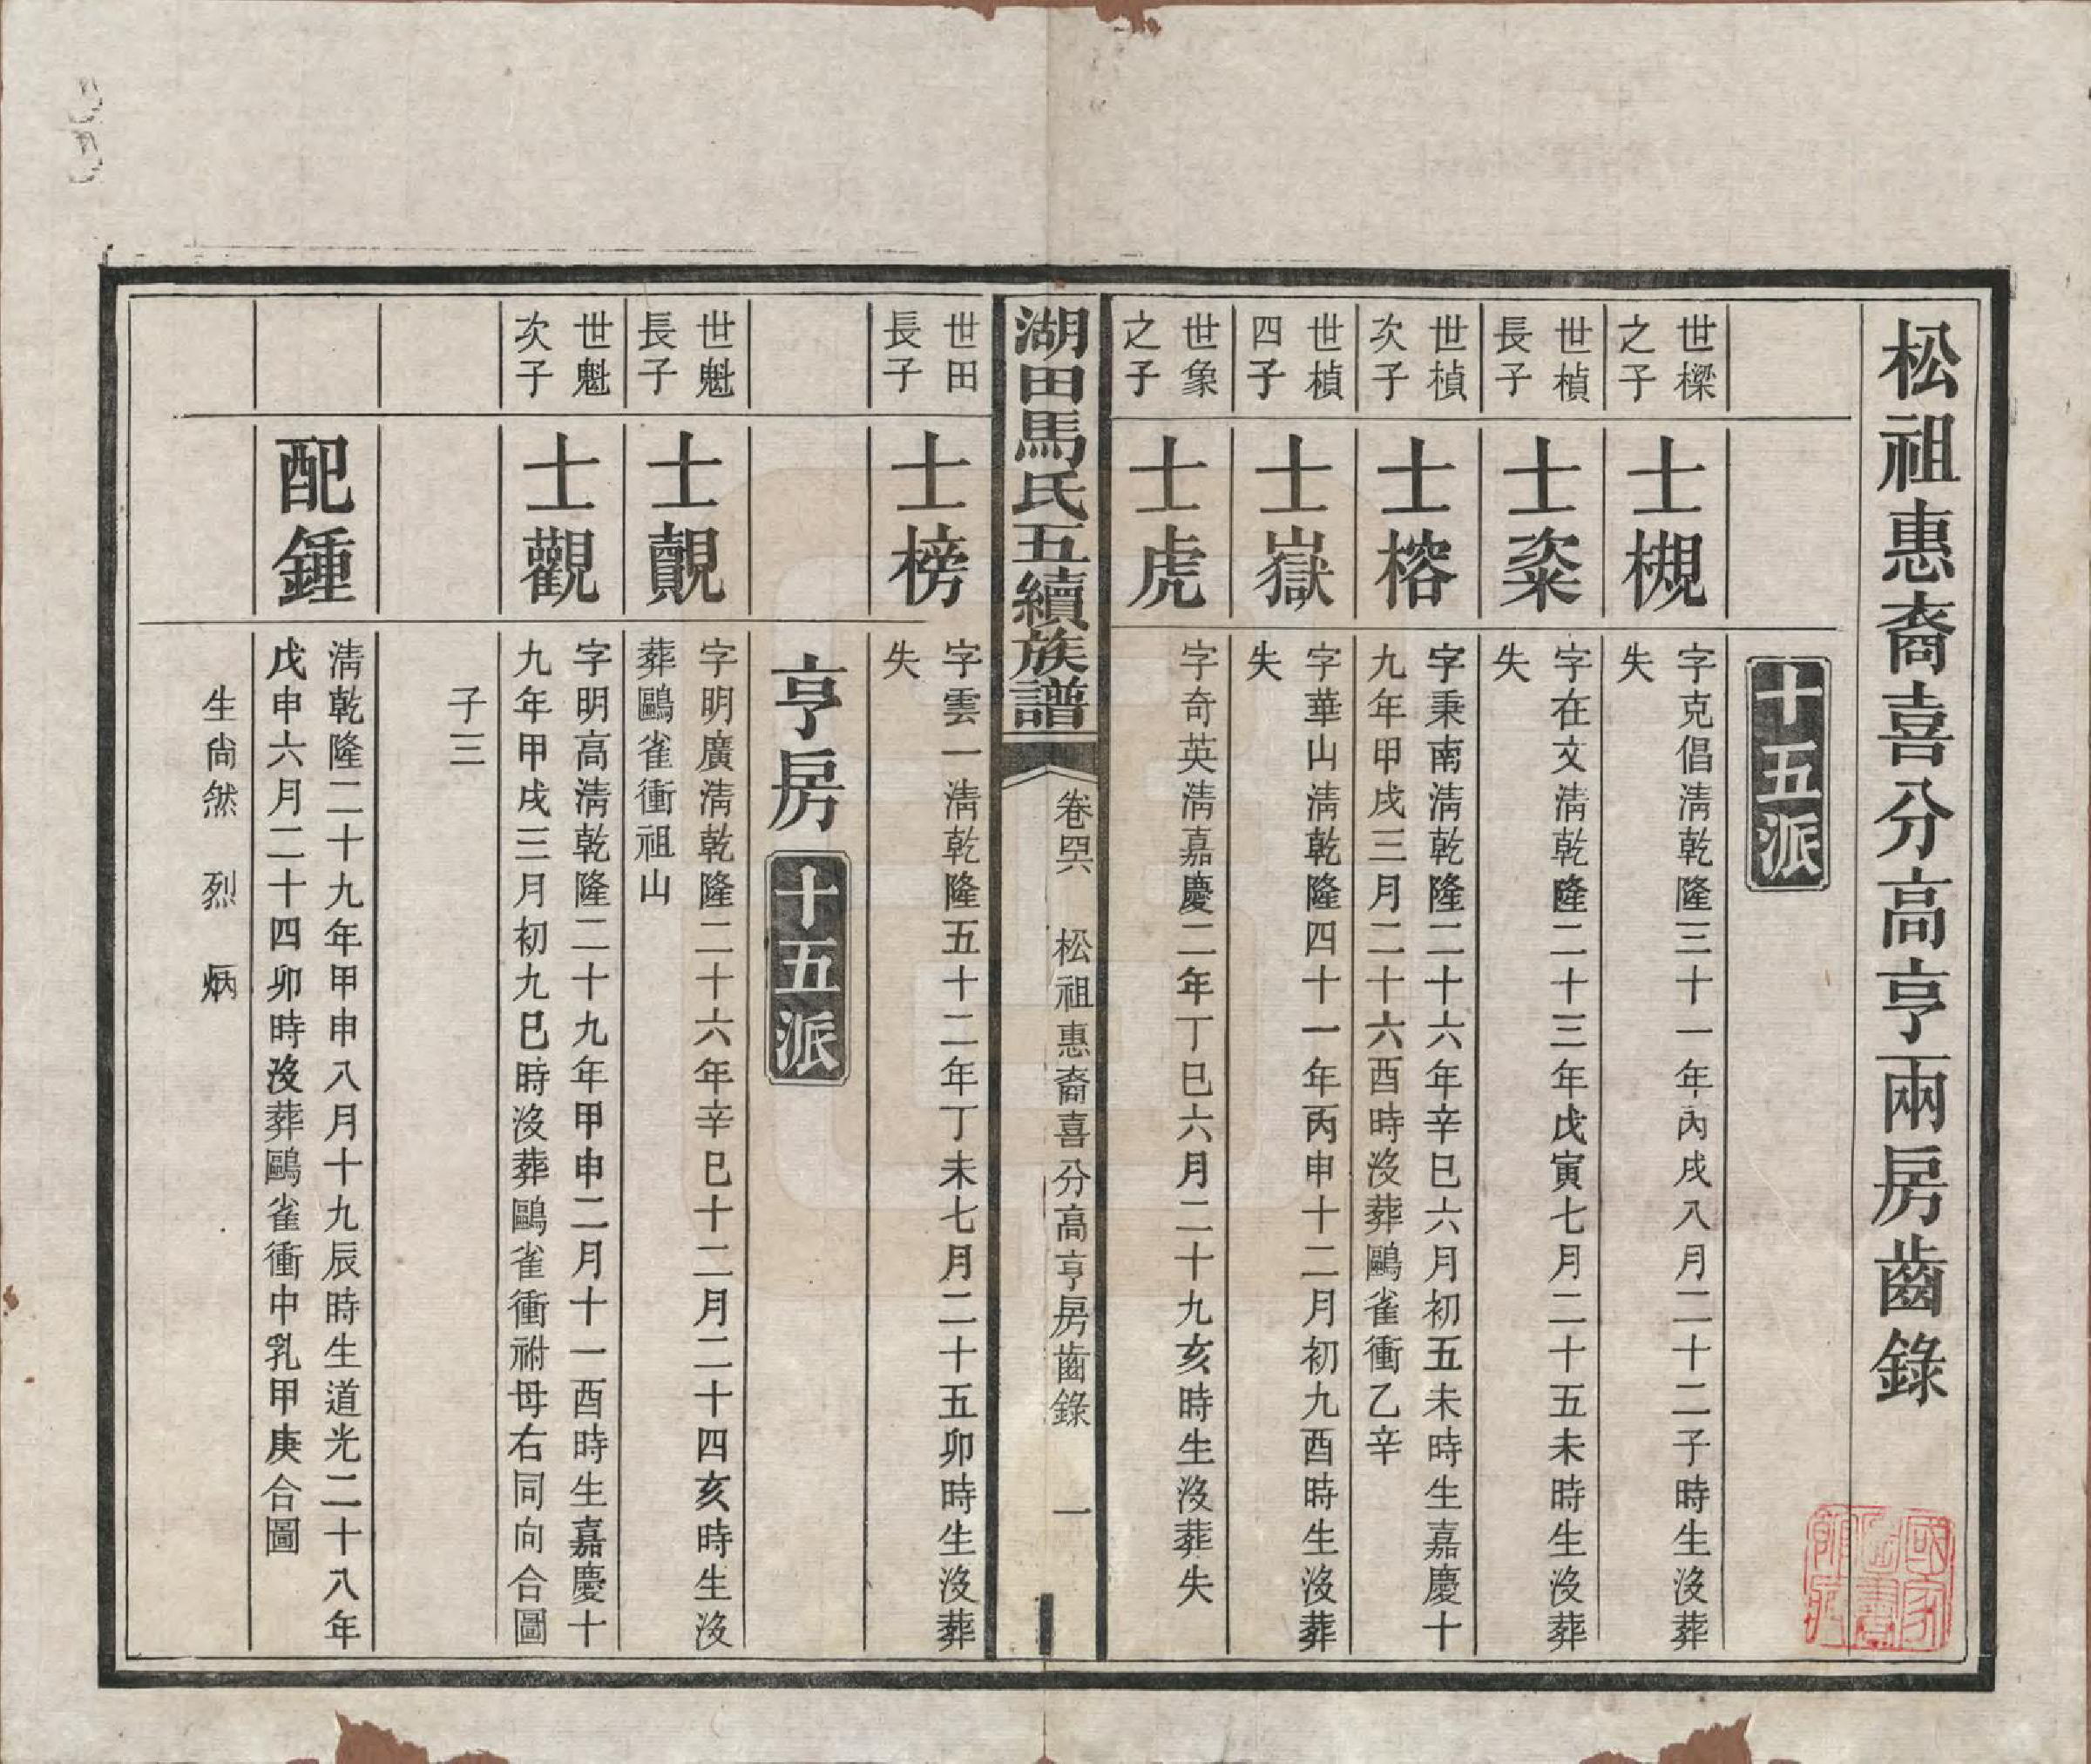 松祖惠裔喜分高亨兩房齒錄
十五派
世樑
之子
士槻
字克倡清乾隆三十一年丙戌八月二十二子時生沒葬
失
世楨
長子
士粢
字在文清乾隆二十三年戊寅七月二十五未時生沒葬
失
世楨
次子
士榕
字秉南清乾隆二十六年辛巳六月初五未時生嘉慶十
九年甲戌三月二十六酉時沒葬鷗雀衝乙辛
世楨
四子
士嶽
字華山清乾隆四十一年丙申十二月初九酉時生沒葬
失
世象
之子
士虎
字奇英清嘉慶二年丁巳六月二十九亥時生沒葬失
湖田馬氏五續族譜
卷四六 松祖惠裔喜分高亨房齒錄 一
世田
長子
士榜
字雲一清乾隆五十二年丁未七月二十五卯時生沒葬
失
亨房 十五派
世魁
長子
士覿
字明廣清乾隆二十六年辛巳十二月二十四亥時生沒
葬鷗雀衝祖山
世魁
次子
士觀
字明高清乾隆二十九年甲申二月十一酉時生嘉慶十
九年甲戌三月初九巳時沒葬鷗雀衝祔母右同向合圖
子三
配鍾
清乾隆二十九年甲申八月十九辰時生道光二十八年
戊申六月二十四卯時沒葬鷗雀衝中乳甲庚合圖
生尙然 烈 炳